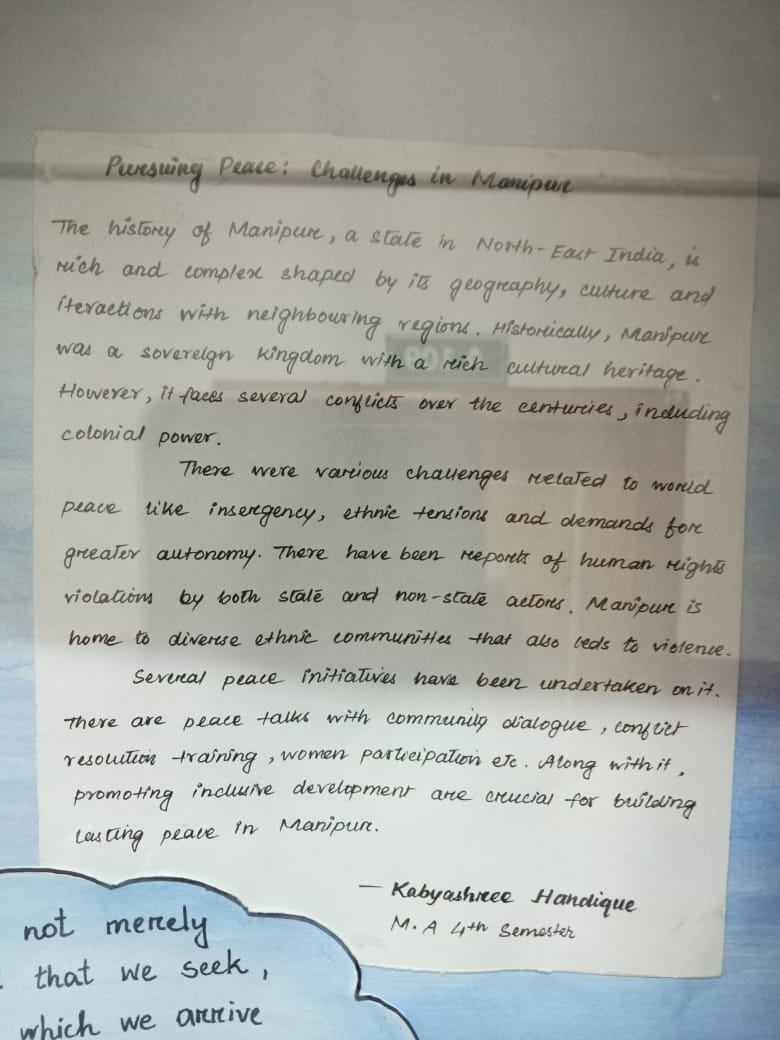 Pursuing Peace: Challenges in Manipur
The history of Manipur, a state in North-East India, is
rich and complex shaped by its geography, culture and
iteractions with neighbouring regions. Historically, Manipur
was a sovereign kingdom with a rich cultural heritage.
However, it faces several conflicts over the centuries, including
colonial power.
There were various challenges related to world
peace like insergency, ethnic tensions and demands for
greater autonomy. There have been reports of human rights
violations by both state and non-state actors. Manipur is
home to diverse ethnic communities that also leds to violence.
Several peace initiatives have been undertaken on it.
There are peace talks with community dialogue, conflict
resolution training, women participation etc. Along with it,
promoting inclusive development are crucial for building
lasting peace in Manipur.
— Kabyashree Handique
M.A 4th Semester
not merely
that we seek,
which we arrive